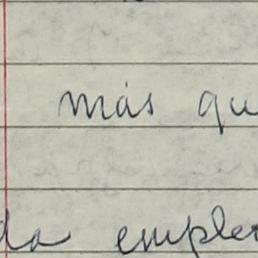 más qu
da emple